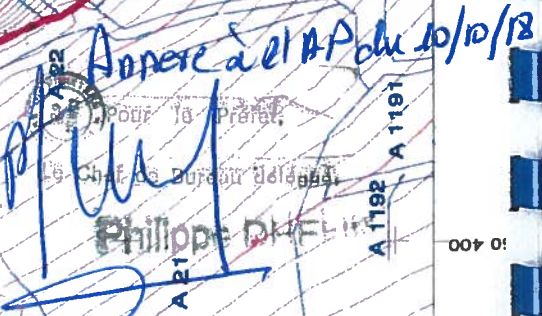 Annexe à l'AP du 10/10/18
A 22
Pour le Préfet,
Le Chef de Bureau délégué,
Philippe
A 1191
A 1192
A 21